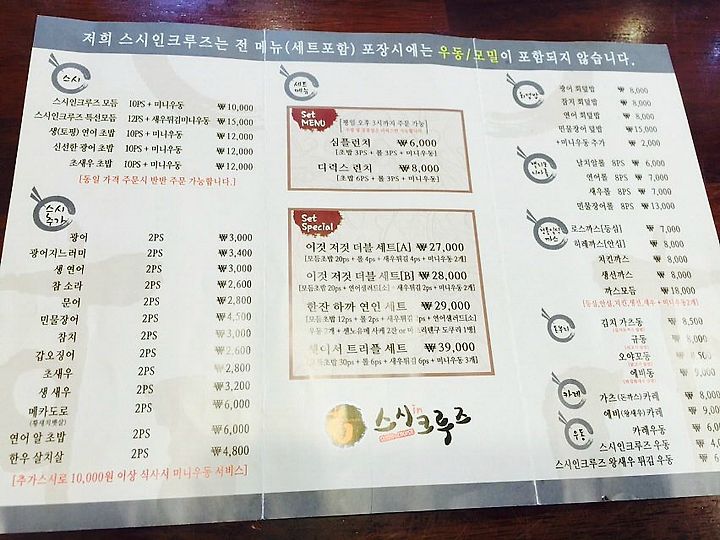 저희 스시인크루즈는 전 메뉴(세트포함) 포장시에는 우동/모밀이 포함되지 않습니다.
스시
스시인크루즈 모듬 10PS + 미니우동 ₩10,000
스시인크루즈 특선모듬 12PS + 새우튀김미니우동 ₩15,000
생(토핑) 연어 초밥 10PS + 미니우동 ₩12,000
신선한 광어 초밥 10PS + 미니우동 ₩12,000
초새우 초밥 10PS + 미니우동 ₩12,000
[동일 가격 주문시 반반 주문 가능합니다.]
스시
추가
광어 2PS ₩3,000
광어지느러미 2PS ₩3,400
생 연어 2PS ₩3,000
참 소라 2PS ₩2,600
문어 2PS ₩2,800
민물장어 2PS ₩4,500
참치 2PS ₩3,000
갑오징어 2PS ₩2,600
초새우 2PS ₩2,800
생 새우 2PS ₩3,200
메카도로 2PS ₩6,000
(황새치뱃살)
연어 알 초밥 2PS ₩6,000
한우 살치살 2PS ₩4,800
[추가스시로 10,000원 이상 식사시 미니우동 서비스]
세트
메뉴
Set
MENU
평일 오후 3시까지 주문 가능
심플런치 ₩6,000
[초밥 3PS + 롤 3PS + 미니우동]
디럭스 런치 ₩8,000
[초밥 6PS + 롤 3PS + 미니우동]
Set
Special
이것 저것 더블 세트[A] ₩27,000
[모듬초밥 20ps + 롤 4ps + 새우튀김 4ps + 미니우동 2개]
이것 저것 더블 세트[B] ₩28,000
[모듬초밥 20ps + 연어샐러드[소] + 새우튀김 2ps + 미니우동 2개]
한잔 하까 연인 세트 ₩29,000
[모듬초밥 12ps + 롤 2ps + 새우튀김 2ps + 연어샐러드[소]
우동 2개 + 센노유메 사케 2잔 or 미 도쿠리 1병]
트리플 세트 ₩39,000
초밥 30ps + 롤 6ps + 새우튀김 6ps + 미니우동 3개]
스시in크루즈
회덮밥
광어 회덮밥 ₩8,000
참치 회덮밥 ₩8,000
연어 회덮밥 ₩8,000
민물장어 덮밥 ₩15,000
+미니우동 추가 ₩2,000
날치알롤 8PS ₩6,000
연어롤 8PS ₩7,000
새우롤 8PS ₩7,000
민물장어롤 8PS ₩13,000
로스까스[등심] ₩7,000
히레까스[안심] ₩8,000
치킨까스 ₩8,000
생선까스 ₩8,000
까스모듬 ₩18,000
[등심,안심,치킨,생선,새우 + 미니우동2개]
돈부리
김치 가츠동 ₩8,500
규동 ₩8,000
오야꼬동
에비동 ₩9,000
카레
가츠(돈까스) 카레 ₩8,000
에비(왕새우) 카레 ₩9,000
우동
카레우동
스시인크루즈 우동
스시인크루즈 왕새우 튀김 우동